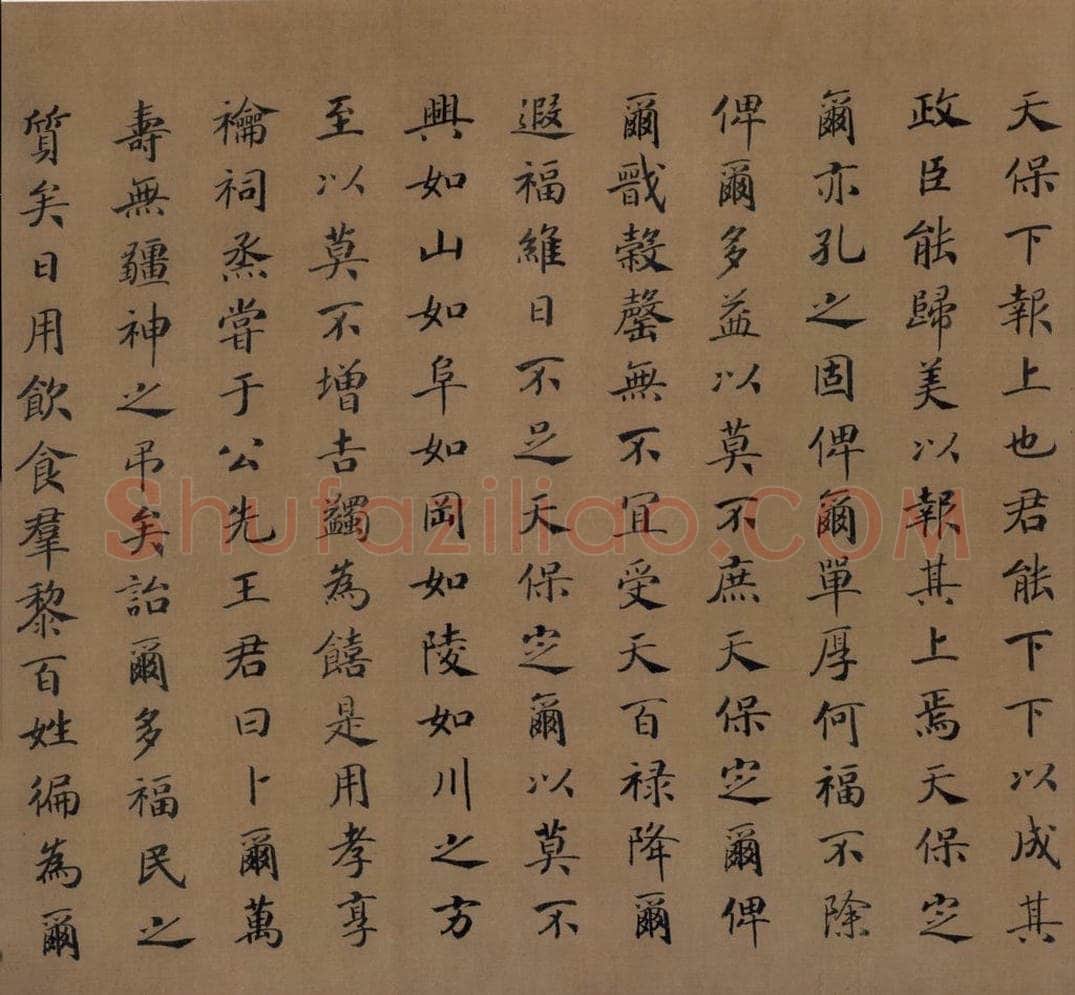 天保下報上也君能下下以成其
政臣能歸美以報其上焉天保定
爾亦孔之固俾爾單厚何福不除
俾爾多益以莫不庶天保定爾俾
爾戩穀罄無不宜受天百禄降爾
遐福維日不足天保定爾以莫不
興如山如阜如岡如陵如川之方
至以莫不增吉蠲為饎是用孝享
禴祠烝甞于公先王君曰卜爾萬
壽無疆神之弔矣詒爾多福民之
質矣日用飲食羣黎百姓徧為爾
Shufaziliao.COM